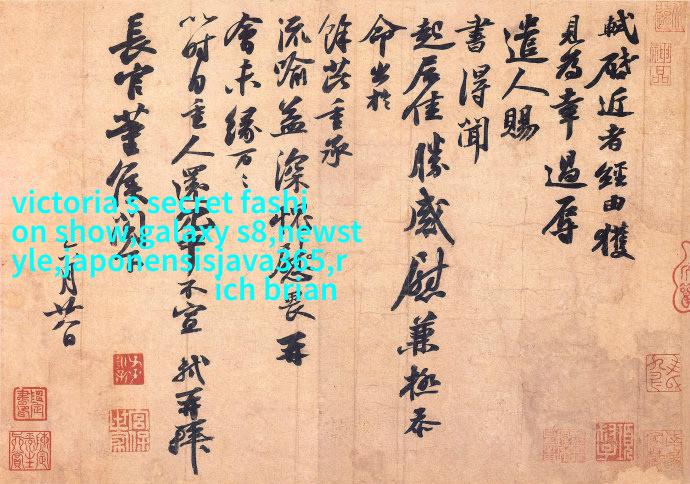 軾啓近者經由獲
見為幸過辱
遣人賜
書得聞
起居佳勝感慰兼極忝
命出於
餘芘重承
流喻益深愧畏再
會未緣万万
以時自重人還冗中不宣 軾再拜
長官董侯閣下
六月廿八日
victoria s secret fashi
on show,galaxy s8,newst
yle,japonensisjava365,r
ich brian